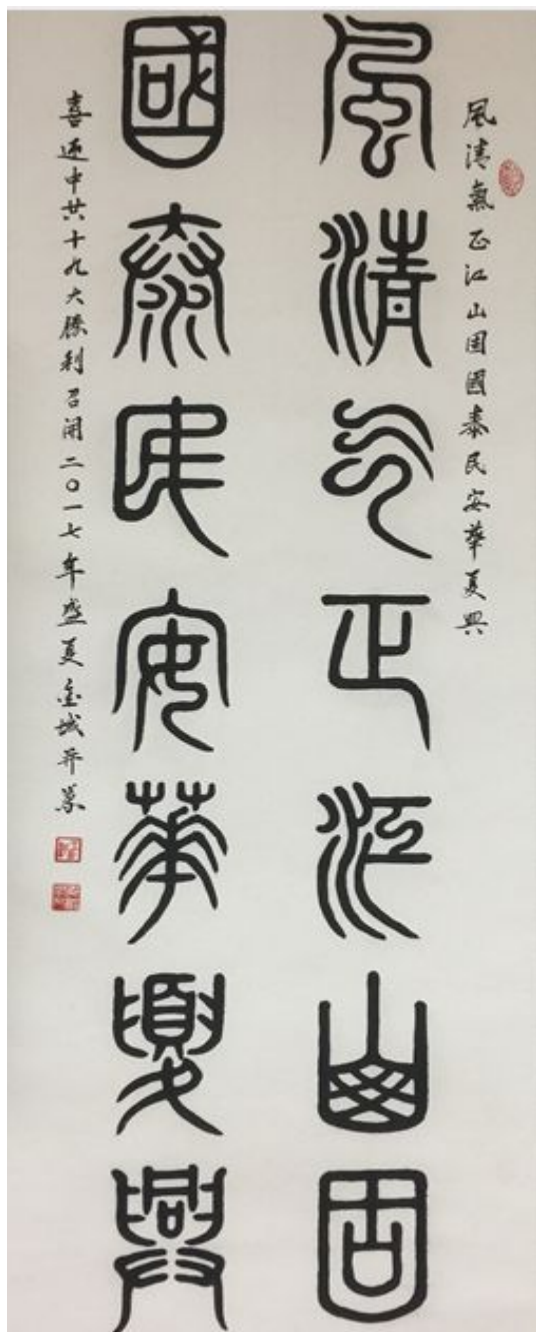 風清氣正江山固國泰民安華夏興
風清气正江山固
國泰民安華夏興
喜迎中共十九大勝利召開二〇一七年盛夏金城并篆